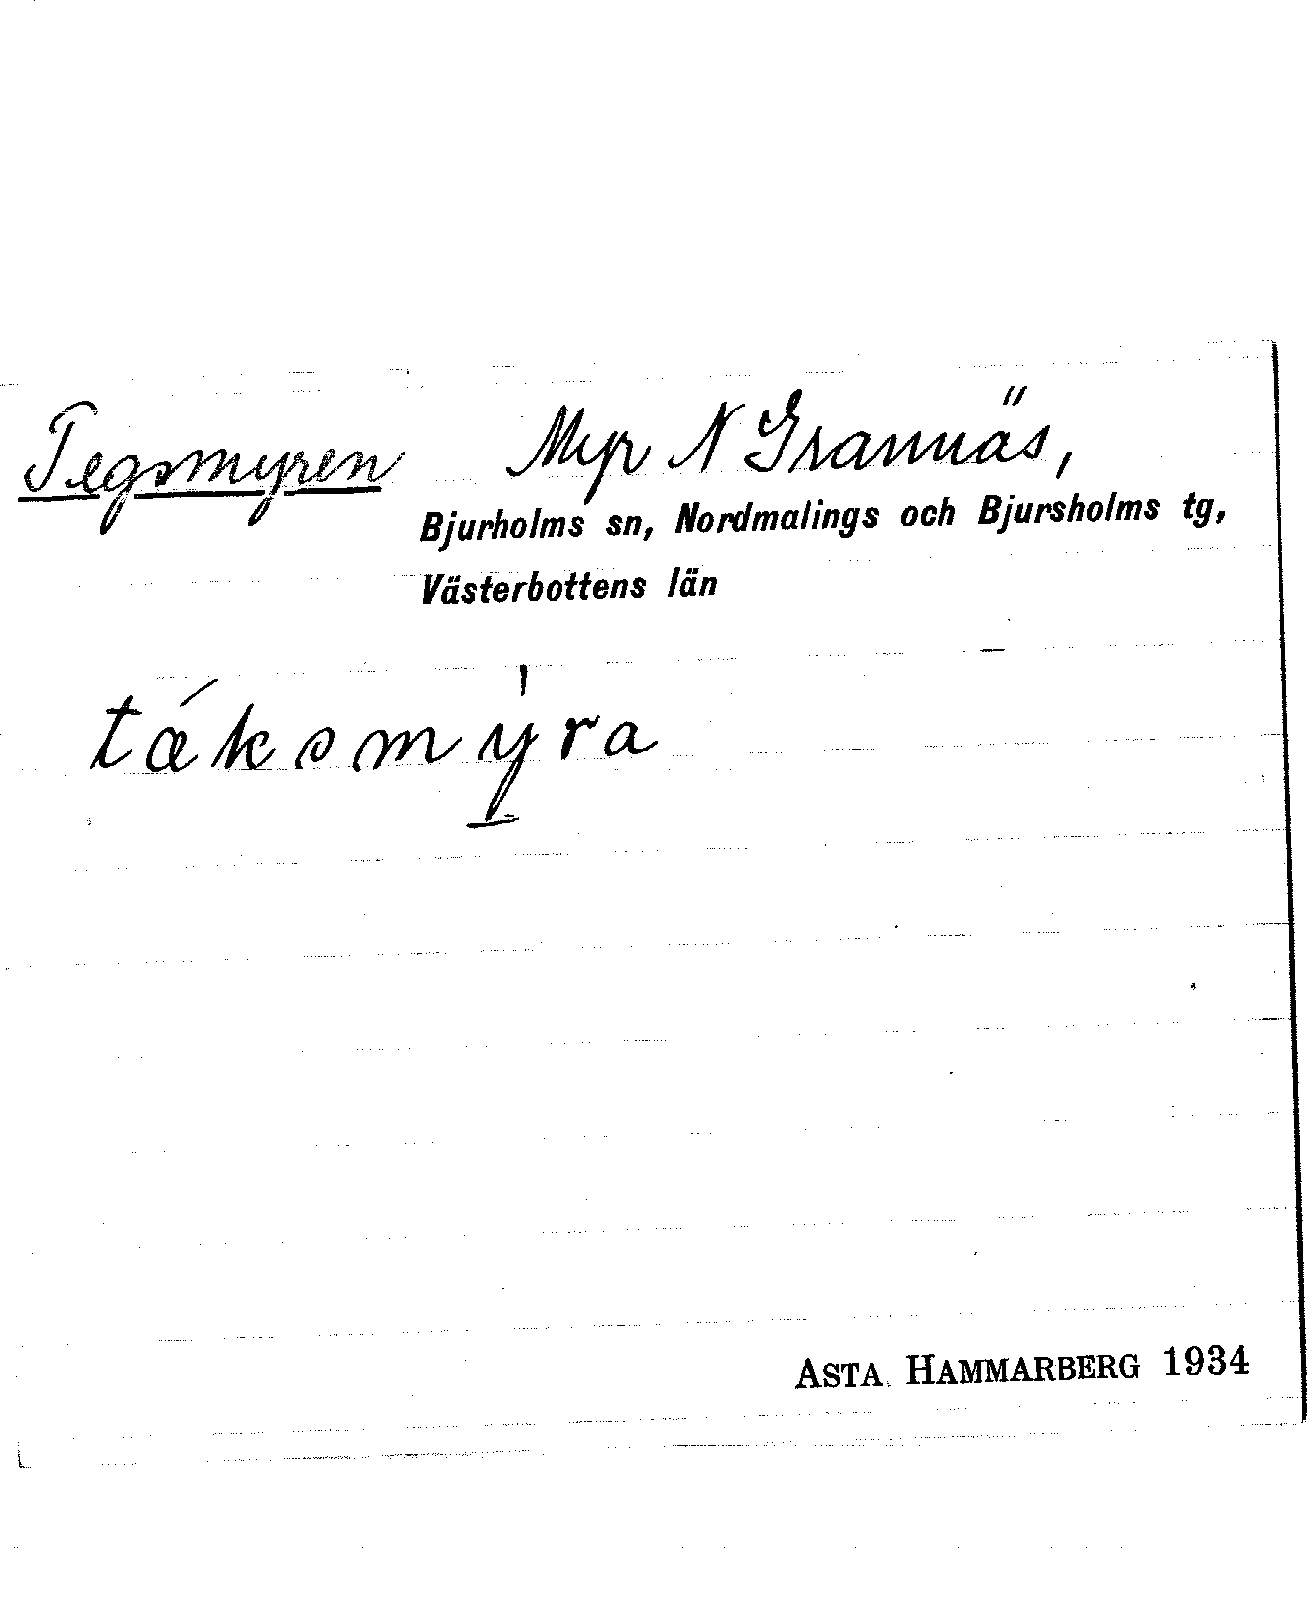 Tegsmyren Myr N Grannäs,
Bjurholms sn, Nordmalings och Bjursholms tg,
Västerbottens län
tǽksmyra
ASTA HAMMARBERG 1934